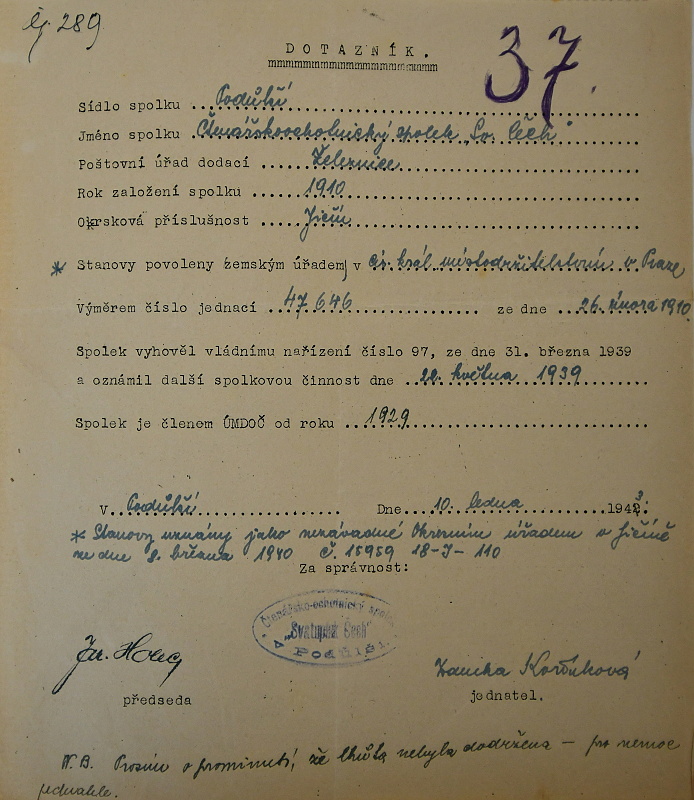 čj. 289
37.
DOTAZNÍK.
Sídlo spolku ... Podůlší
Jméno spolku Čtenářskoochotnický spolek „Sv. Čech"
Poštovní úřad dodací ... Železnice
Rok založení spolku ... 1910
Okrsková příslušnost ... Jičín
* Stanovy povoleny zemským úřadem v cís. král. místodržitelstvím v Praze,
Výměrem číslo jednací 47646 ... ze dne ... 26. února 1910
Spolek vyhověl vládnímu nařízení číslo 97, ze dne 31. března 1939
a oznámil další spolkovou činnost dne ... 22. května 1939
Spolek je členem ÚMDOČ od roku ... 1929
V Podůlší ... Dne ... 10. ledna ... 1943.
* Stanovy uznány jako nezávadné Okresním úřadem v Jičíně
ze dne 8. března 1940 č. 15959 18-I-110
Za správnost:
Čtenářsko-ochotnický spolek
„Svatopluk Čech"
v Podůlší.
předseda
jednatel.
N.B. Prosím o prominutí, že lhůta nebyla dodržena — pro nemoc
jednatele.